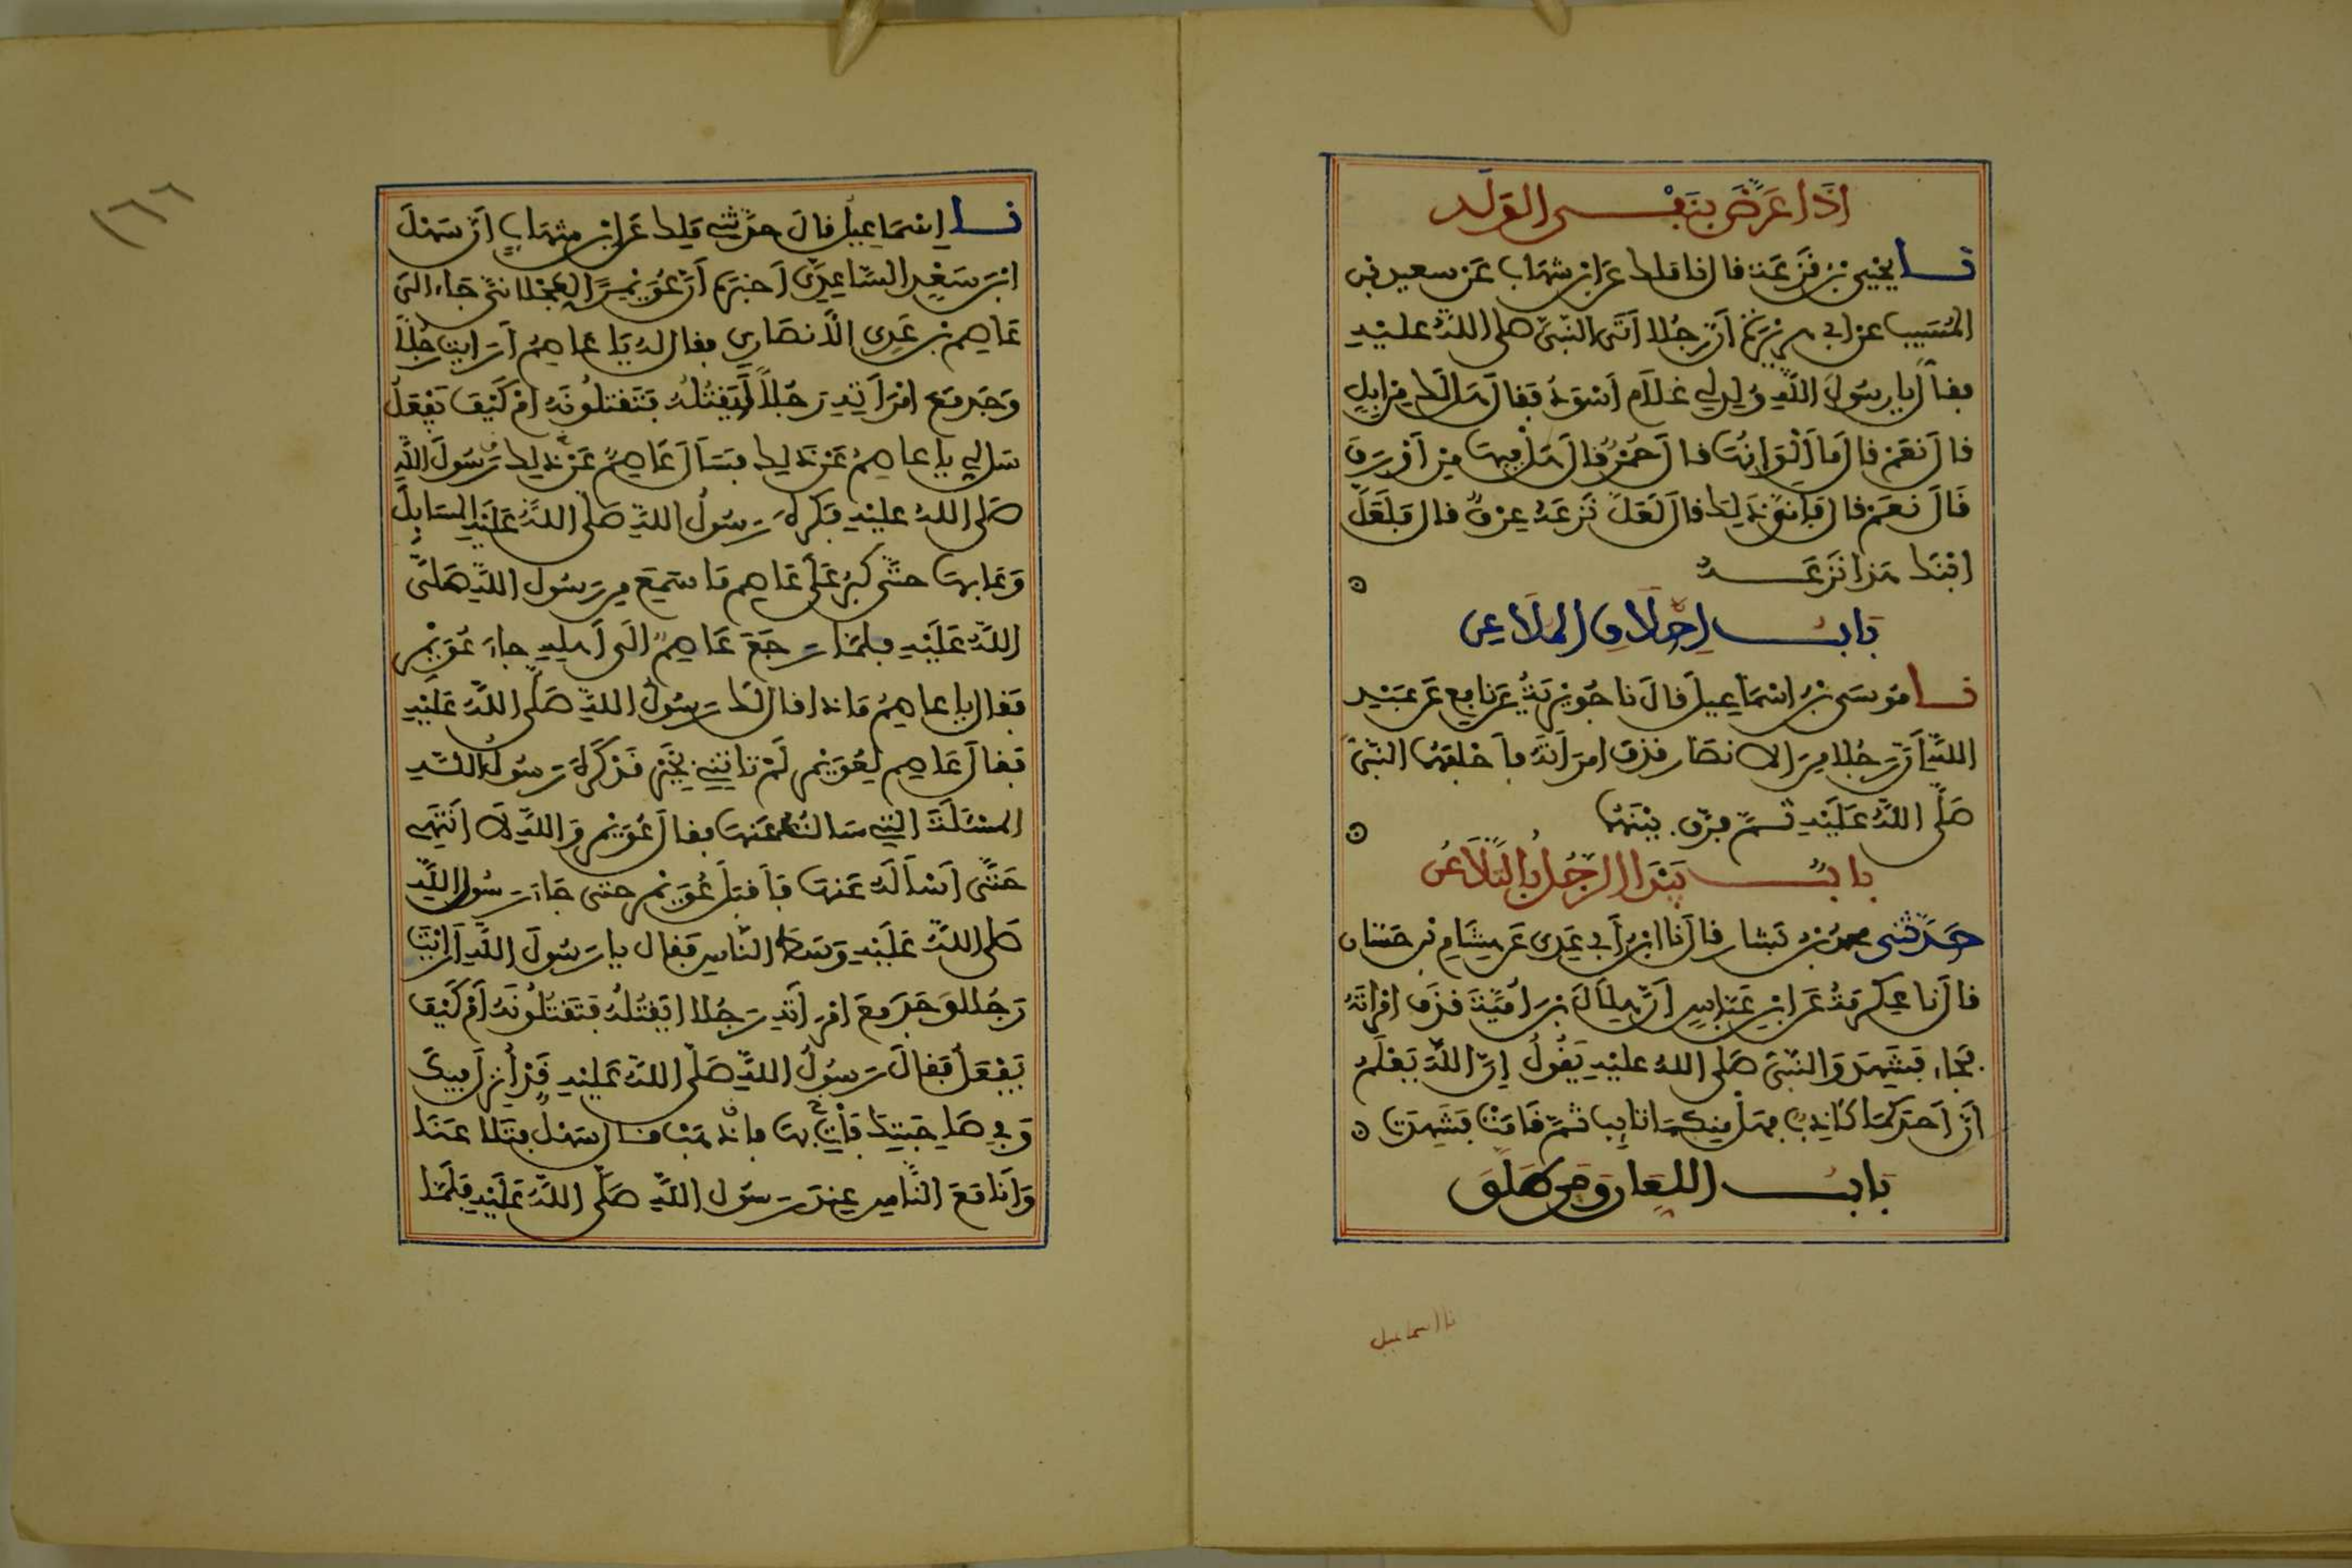 اذا عرّض بنفــي الولد
نــا يحيى بن قزعة قال نا ملك عن ابن شهاب عن سعيد بن
المسيب عن ابي هريرة أن رجلا أتى النبي صلى الله عليه
فقال يا رسول الله ولد لي غلام أسود فقال هل لك من إبل
قال نعم قال ما ألوانها قال حمر قال هل فيها من أورق
قال نعم قال فأنى ذلك قال لعل نزعه عرق قال فلعل
ابنك هذا نزعــه
بابــ إحلاف الملاعن
نــا موسى بن اسماعيل قال نا جويرية عن نافع عن عبد
الله أن رجلا من الانصار قذف امرأته فأحلفهما النبي
صلى الله عليه ثم فرّق بينهما
بابــ يبدا الرجل بالتلاعن
حدثني محمد بن بشار قال نا ابن أبي عدي عن هشام بن حسان
قال نا عكرمة عن ابن عباس أن هلال بن أمية قذف امرأته
فجاء فشهد والنبي صلى الله عليه يقول إن الله يعلم
أن أحدكما كاذب فهل منكما تايب ثم قامت فشهدت
بابــ اللعان ومن طلق
نا اسماعيل
١٦٦
نــا إسماعيل قال حدثني ملك عن ابن شهاب أن سهل
ابن سعد الساعدي أخبره أن عويمرا العجلاني جاء الى
عاصم بن عدي الأنصاري فقال له يا عاصم أرايت رجلا
وجد مع امرأته رجلا أيقتله فتقتلونه أم كيف يفعل
سل لي يا عاصم عن ذلك فسأل عاصم عن ذلك رسول الله
صلى الله عليه فكره رسول الله صلى الله عليه المسايل
وعابها حتى كبر على عاصم ما سمع من رسول الله صلى
الله عليه فلما رجع عاصم الى أهله جاء عويمر
فقال يا عاصم ماذا قال لك رسول الله صلى الله عليه
فقال عاصم لعويمر لم تاتني بخير قد كره رسول الله
المسئلة التي سالتك عنها فقال عويمر والله لا أنتهي
حتى أسأله عنها فأقبل عويمر حتى جاء رسول الله
صلى الله عليه وسط الناس فقال يا رسول الله أرأيت
رجلا وجد مع امرأته رجلا ايقتله فتقتلونه أم كيف
يفعل فقال رسول الله صلى الله عليه قد أنزل فيك
وفي صاحبتك فأت بها فاذهب قال سهل فتلاعنا
وأنا مع الناس عند رسول الله صلى الله عليه فلما